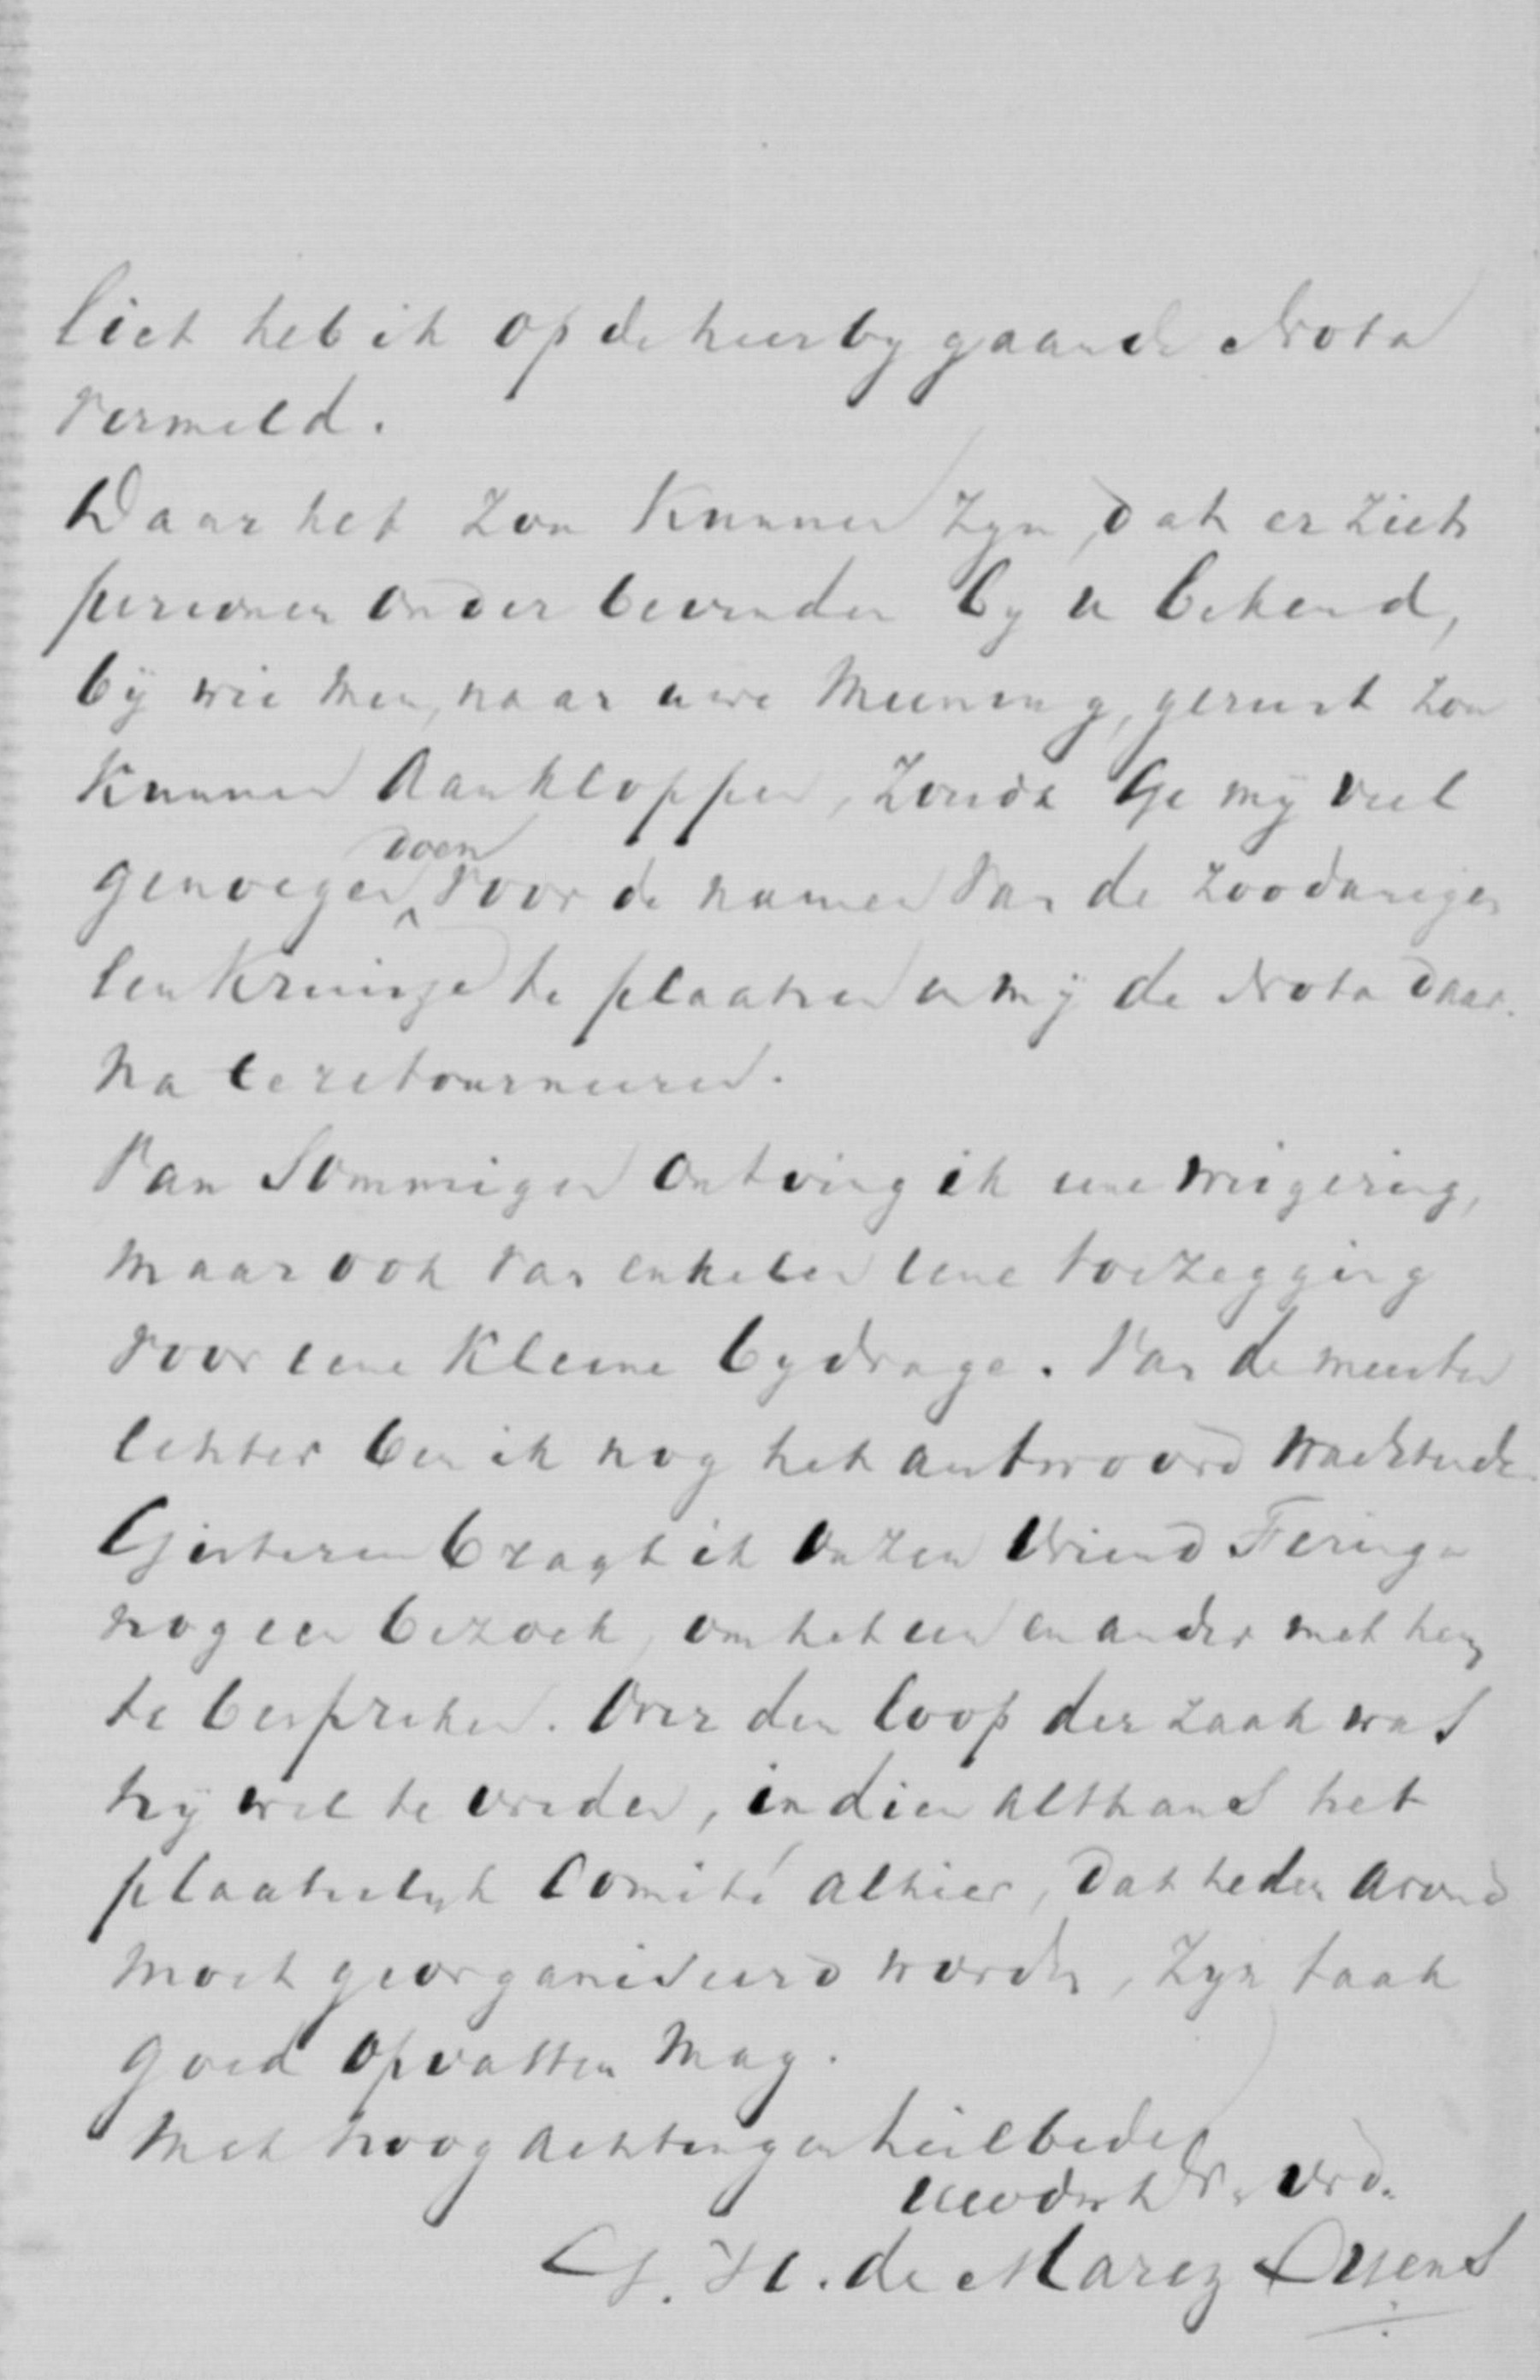 liet heb ik op de hierby gaande Nota
vermeld.
Daar het zou kunnen zyn, dat er zich
personen onder bevinden by u bekend,
bÿ wie men, naar uwe meening, gerust zou
kunnen aankloppen, zoudt Ge mÿ veel
genoegen doen voor de namen van de zoodanigen
een kruisje te plaatsen en mÿ de Nota daar
na te retourneeren.
Van Sommigen ontving ik eene weigering,
maar ook van enkelen eene toezegging
voor eene kleine bydrage. Van de meesten
echter ben ik nog het antwoord wachtende
Gisteren bragt ik onzen vriend Feringa
nog een bezoek, om het een en ander met hem
te bespreken. Over den loop der zaak was
hÿ wel te vreden, indien althans het
plaatselyk Comité alhier, dat heden avond
moet georganiseerd worden, zyn taak
goed opvatten mag.
Met hoogachting en heilbede
Uwodwt Dr. vrd.
H. de Marez Oyens